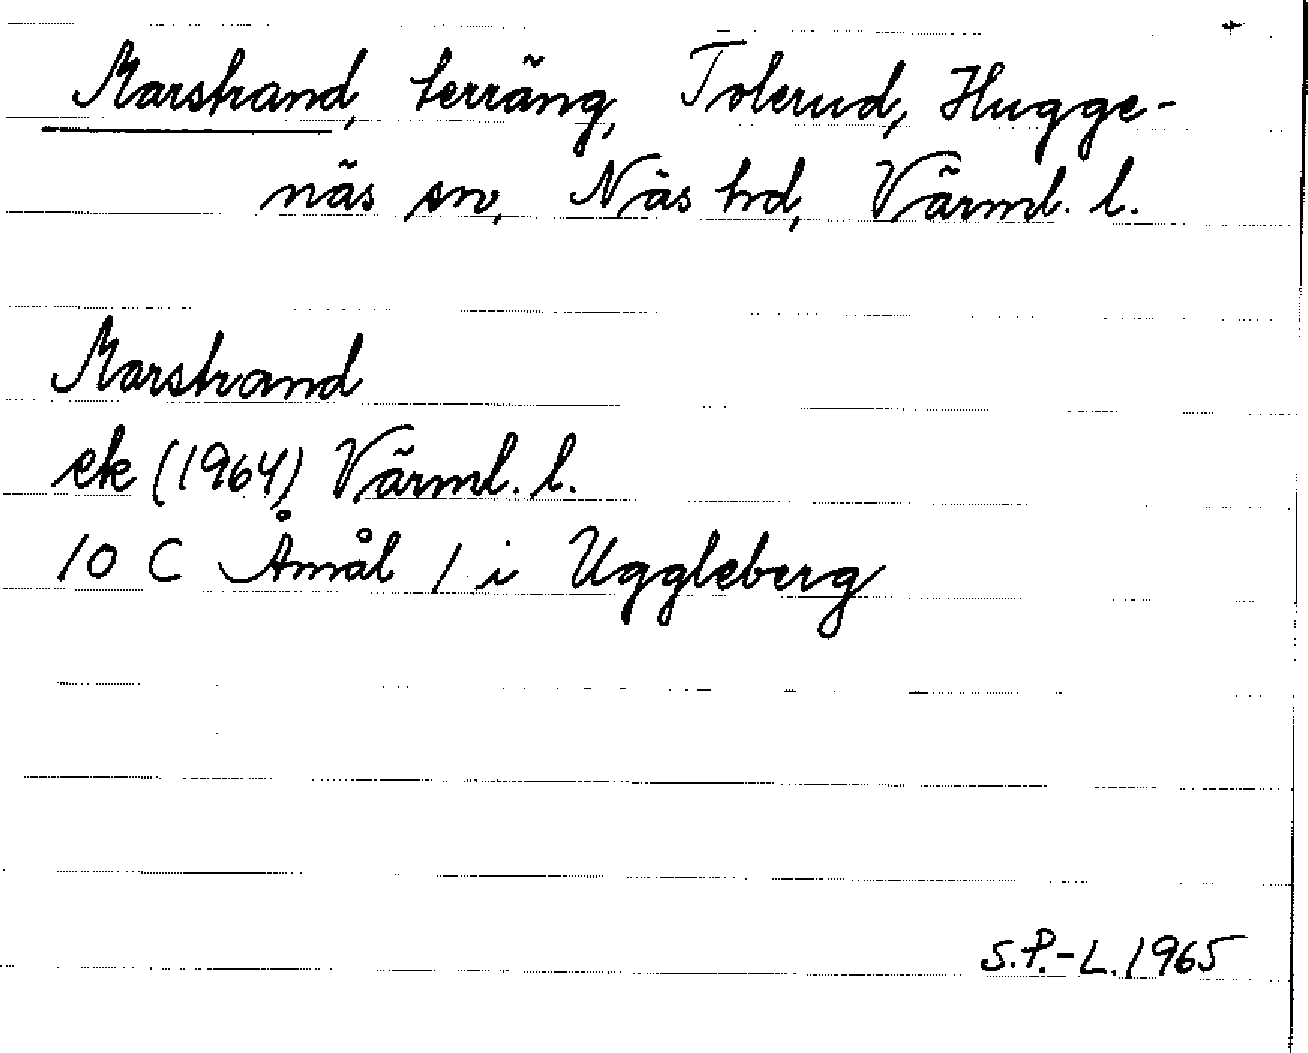 Marstrand, terräng, Tolerud, Hugge-
näs sn, Näs hd, Värml. l.
Marstrand
ek (1964) Värml. l.
10 C Åmål 1 i Uggleberg
S.P.-L. 1965